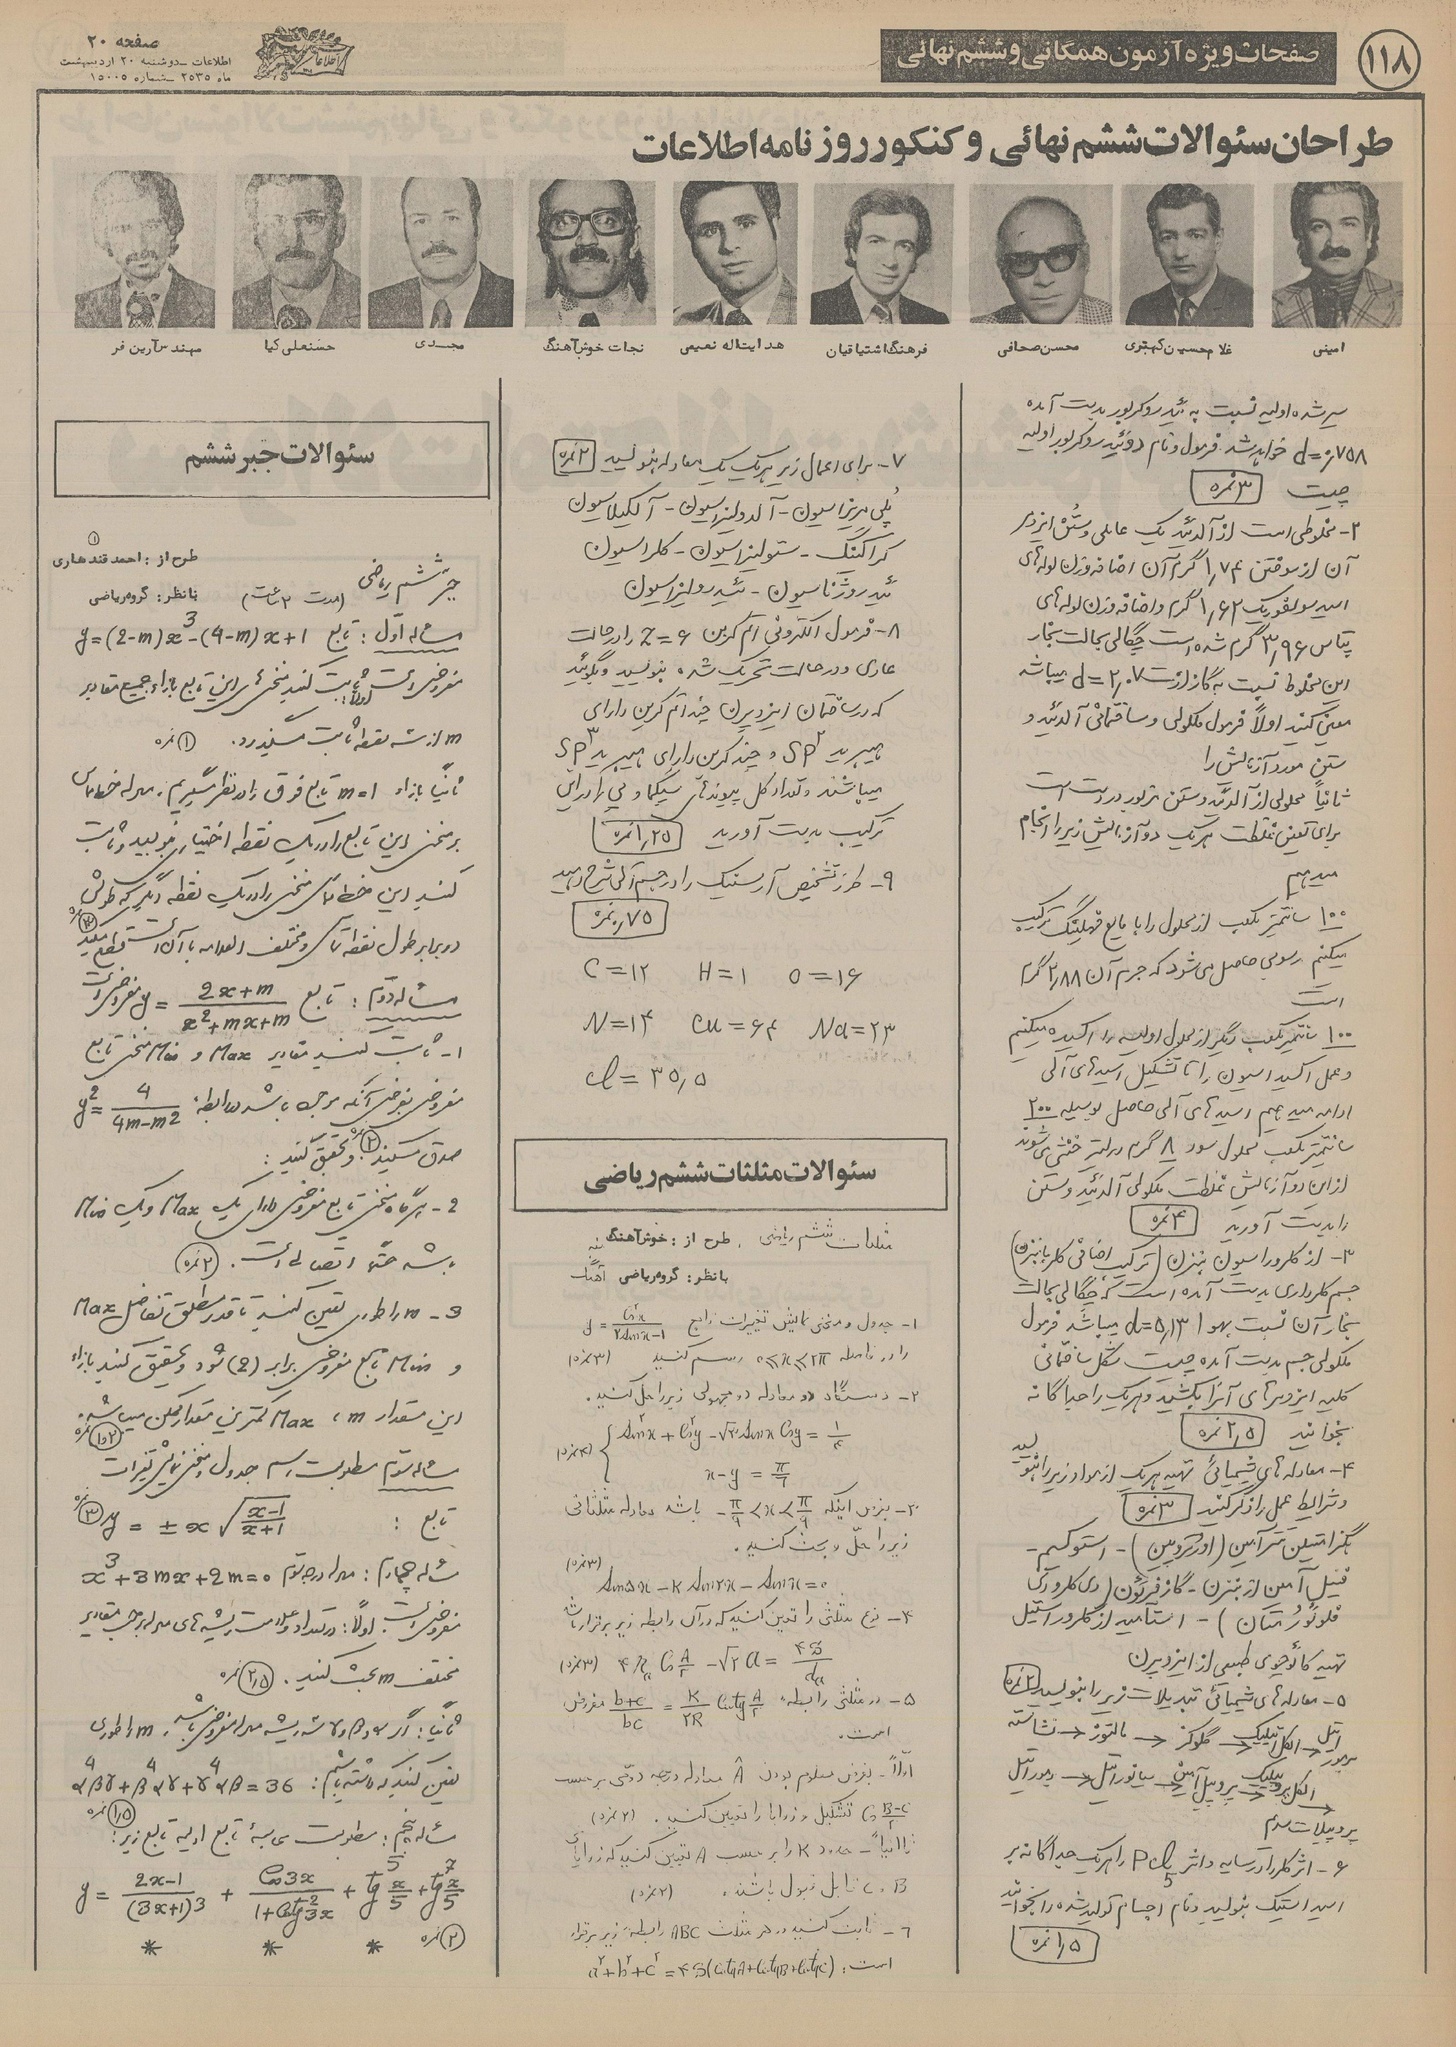 ۱۱۸
صفحات ویژه آزمون همگانی و ششم نهائی
صفحه ۲۰
اطلاعات ــ دوشنبه ۲۰ اردیبهشت
ماه ۲۵۳۵ ــ شماره ۱۵۰۰۵
طراحان سئوالات ششم نهائی و کنکور روزنامه اطلاعات
امینی
غلامحسین کهتری
محسن صحافی
فرهنگ اشتیاقیان
هدایت‌اله نعیمی
نجات خوش‌آهنگ
مجــدی
حسنعلی کیا
مهندس آرین فر
سیر شده اولیه نسبت به ئیدروکربور بدست آمده
d=۰٫۷۵۸ خواهد شد فرمول و نام دو ئیدروکربور اولیه
چیست ۳نمره
۲- مخلوطی است از آلدئید یک عاملی و ستن ایزومر
آن از سوختن ۱٫۷۴ گرم آن اضافه وزن لوله‌های
اسید سولفوریک ۱٫۶۲ گرم و اضافه وزن لوله‌های
پتاس ۳٫۹۶ گرم شده است چگالی بحالت بخار
این مخلوط نسبت به گاز ازت d=۲٫۰۷ میباشد
معین کنید اولاً فرمول ملکولی و ساختمانی آلدئید و
ستن مورد آزمایش را
ثانیاً محلولی از آلدئید و ستن مزبور در دست است
برای تعیین غلظت هر یک دو آزمایش زیر را انجام
میدهیم
۱۰۰ سانتیمتر مکعب از محلول را با مایع فهلینگ ترکیب
میکنیم رسوبی حاصل می‌شود که جرم آن ۲٫۸۸ گرم
است
۱۰۰ سانتیمتر مکعب دیگر از محلول اولیه را اکسیده میکنیم
و عمل اکسیداسیون را تا تشکیل اسیدهای آلی
ادامه میدهیم اسیدهای آلی حاصل بوسیله ۲۰۰
سانتیمتر مکعب محلول سود ۸ گرم در لیتر خنثی می‌شوند
از این دو آزمایش غلظت ملکولی آلدئید و ستن
را بدست آورید ۴نمره
۳- از کلروراسیون بنزن (ترکیب اضافی کلر با بنزن)
جسم کلرداری بدست آمده است که چگالی بحالت
بخار آن نسبت بهوا d=۵٫۱۳ میباشد فرمول
ملکولی جسم بدست آمده چیست شکل ساختمانی
کلیه ایزومرهای آنرا بکشید و هر یک را جداگانه
بخوانید ۲٫۵ نمره
۴- معادله‌های شیمیائی تهیه هر یک از مواد زیر را بنویسید
و شرایط عمل را ذکر کنید ۳نمره
هگزامتیلن تترآمین (اوروتروپین) - استوکسیم -
فنیل آمین از بنزن - گاز فرئون (دی کلرو دی
فلوئورُ متان) - استامید از کلرور استیل
تهیه کائوچوی طبیعی از ایزوپرن
۵- معادله‌های شیمیائی تبدیلات زیر را بنویسید ۲نمره
نشاسته → مالتوز → گلوکز → الکل اتیلیک → برمور اتیل
→ سیانور اتیل → پروپیل آمین → الکل پروپیلیک
→ پروپیلات سدیم
۶- اثر کلر را در سایه و اثر PCl₅ را هر یک جداگانه بر
اسید استیک بنویسید و نام اجسام تولید شده را بخوانید
۱٫۵ نمره
۷- برای اعمال زیر هر یک یک معادله بنویسید ۲نمره
پُلی مریزاسیون - آلدولیزاسیون - آلکیلاسیون
کراکینگ - ستولیزاسیون - کلراسیون
ئیدروژناسیون - ئیدرولیزاسیون
۸- فرمول الکترونی اتم کربن Z=۶ را در حالت
عادی و در حالت تحریک شده بنویسید و بگوئید
که در ساختمان ایزوپرن چند اتم کربن دارای
هیبرید SP² و چند کربن دارای هیبرید SP³
میباشند و تعداد کل پیوندهای سیگما و پی را در این
ترکیب بدست آورید ۱٫۲۵ نمره
۹- طرز تشخیص آرسنیک را در جسم آلی شرح دهید
۰٫۷۵ نمره
C=۱۲ H=۱ O=۱۶
N=۱۴ Cu=۶۴ Na=۲۳
Cl=۳۵٫۵
سئوالات مثلثات ششم ریاضی
مثلثات ششم ریاضی طرح از : خوش‌آهنگ
بانظر: گروه ریاضی
۱- جدول و منحنی نمایش تغییرات تابع y = Cos x / (۲Sin x-۱)
را در فاصله ۰≤x≤۲π رسم کنید (۳نمره)
۲- دستگاه دو معادله دو مجهولی زیر را حل کنید.
Sin²x + Cos²y - √۳ Sin x Cos y = ۱/۴
x-y = π/۶ (۴نمره)
۳- بفرض اینکه -π/۶ < x < π/۶ باشد معادله مثلثاتی
زیر را حل و بحث کنید.
(۳نمره)
Sin۵x - K Sin۲x - Sin x = ۰
۴- نوع مثلثی را تعیین کنید که در آن رابطه زیر برقرار باشد
(۳نمره)
۵- در مثلثی رابطه (b+c)/bc = K/۲R Cotg A/۲ مفروض
است.
اولاً- بفرض معلوم بودن A معادله درجه دومی برحسب
Cos (B-C)/۲ تشکیل و زوایا را تعیین کنید. (۲نمره)
ثانیاً- حدود K را بر حسب A تعیین کنید که زوایای
B و C قابل قبول باشند. (۲نمره)
۶- ثابت کنید در هر مثلث ABC رابطه زیر برقرار
است: a²+b²+c²=۴S(CotgA+CotgB+CotgC)
سئوالات جبر ششم
طرح از : احمد قندهاری
جبر ششم ریاضی
(مدت ۲ ساعت) بانظر: گروه ریاضی
مسئله اول: تابع y=(2-m)x³-(4-m)x+1
مفروض است اولاً: ثابت کنید منحنی‌های این تابع بازاء جمیع مقادیر
m از سه نقطه ثابت میگذرد. ۱ نمره
ثانیاً بازاء m=1 تابع فوق را در نظر میگیریم، معادله خط مماس
بر منحنی این تابع را در یک نقطه اختیاری بنویسید و ثابت
کنید این خط مماس منحنی را در یک نقطه دیگر که طولش
دو برابر طول نقطه تماس و مختلف العلامه با آن است قطع میکند ۳ نمره
مسئله دوم: تابع y = (2x+m)/(x²+mx+m) مفروض است
۱- ثابت کنید مقادیر Max و Min منحنی تابع
مفروض بفرض آنکه موجود باشد در رابطه: y² = 4/(4m-m²)
صدق میکنند ۲ و تحقیق کنید:
2- هرگاه منحنی تابع مفروض دارای یک Max و یک Min
باشد حتماً اتصالی است. ۲ نمره
3- m را طوری تعیین کنید تا قدر مطلق تفاضل Max
و Min تابع مفروض برابر (2) شود و تحقیق کنید بازاء
این مقدار m، Max کمترین مقدار ممکن میباشد.
مسئله سوم مطلوبست رسم جدول و منحنی نمایش تغیرات
تابع: y = ±x√((x-1)/(x+1)) ۳ نمره
مسئله چهارم: معادله درجه سوم x³+3mx+2m=0
مفروض است. اولاً: در تعداد و علامت ریشه‌های معادله برحسب مقادیر
مختلف m بحث کنید. ۲٫۵ نمره
ثانیاً: اگر α و β و γ سه ریشه معادله مفروض باشد، m را طوری
تعیین کنید که داشته باشیم: α⁴βγ+β⁴αγ+γ⁴αβ=36
۱٫۵ نمره
مسئله پنجم: مطلوبست محاسبهٔ تابع اولیه تابع زیر:
y = (2x-1)/(3x+1)³ + Cos3x/(1+Cotg²3x) + tg⁵ x/5 + tg⁷ x/5
۲ نمره
* * *